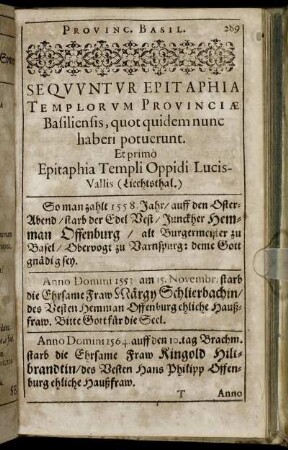 PROVINC. BASIL. 289
SEQVVNTVR EPITAPHIA
TEMPLORVM PROVINCIÆ
Basiliensis, quot quidem nunc
haberi potuerunt.
Et primò
Epitaphia Templi Oppidi Lucis-
Vallis (Liechtsthal.)
So man zahlt 1558. Jahr/ auff den Oster-
Abend/ starb der Edel Vest/ Junckher Hem-
man Offenburg/ alt Burgermeister zu
Basel/ Obervogt zu Varnspurg: deme Gott
gnädig sey.
Anno Domini 1553 am 15. Novembr. starb
die Ehrsame Fraw Märgy Schlierbachin/
des Vesten Hemman Offenburg ehliche Hauß-
fraw. Bitte Gott für die Seel.
Anno Domini 1564. auff den 10. tag Brachm.
starb die Ehrsame Fraw Ringold Hilt-
brandtin/ des Vesten Hans Philipp Offen-
burg ehliche Haußfraw.
T Anno